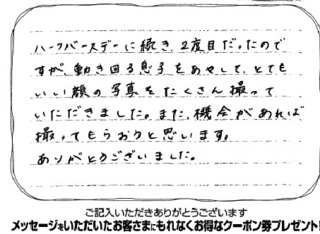 ハーフバースデーに続き、2度目だったので
すが、動き回る息子をあやして、とても
いい顔の写真をたくさん撮って
いただきました。また、機会があれば
撮ってもらおうと思います。
ありがとうございました。
ご記入いただきありがとうございます
メッセージをいただいたお客さまにもれなくお得なクーポン券プレゼント!